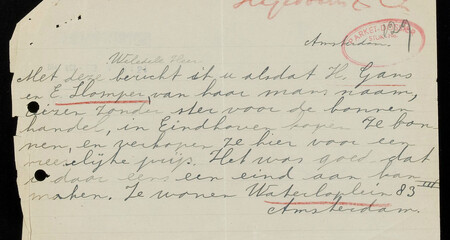 Amsterdam
Weledele Heer
Met deze bericht ik u alsdat H. Gans
en E. Slomper, van haar mans naam,
zonder ster voor de bonnen
handel, in Eindhoven kopen ze bon
nen, en verkopen ze hier voor een
vreeselijke prijs. Het was goed dat
u daar eens een eind aan kan
maken. Ze wonen Waterlooplein 83 III
Amsterdam